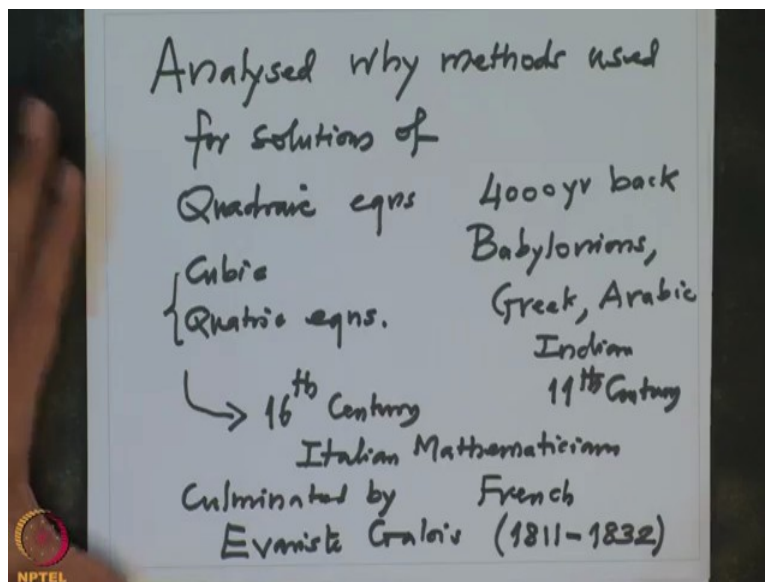 Analysed why methods used
for solutions of
Quadraic eqns 4000yr back
Babylonions,
Cubic
Greek, Arabic
Quatric eqns.
Indian
11th Century
16th Century
Italian Mathematiciam
Culminated by French
Evariste Galois (1811-1832)
NPTEL